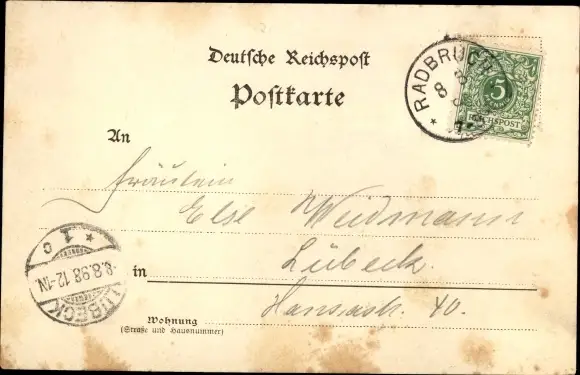 Deutsche Reichspost
Postkarte
RADBRUCH
8 8
5
REICHSPOST
An
Fräulein
Else Weidmann
in Lübeck.
Hansastr. 40.
Wohnung
(Straße und Hausnummer)
LÜBECK
8.8.98.12-1N.
* 1 c